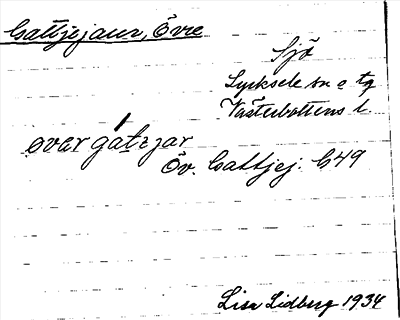 Gattjejaur, Övre
Sjö
Lycksele sn o tg
Västerbottens l.
øvar gátejar
Öv. Gattjej. G49
Lisa Lidberg 1934